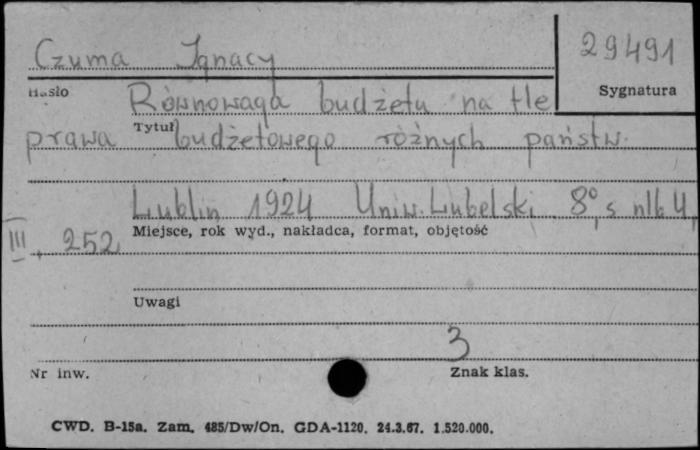 Czuma Ignacy
29491
Hasło
Sygnatura
Równowaga budżetu na tle
Tytuł
prawa budżetowego różnych państw.
Lublin 1924 Uniw. Lubelski. 8°, s nlb 4,
Miejsce, rok wyd., nakładca, format, objętość
III, 252
Uwagi
3
Nr inw.
Znak klas.
CWD. B-15a. Zam. 485/Dw/On. GDA-1120. 24.3.67. 1.520.000.